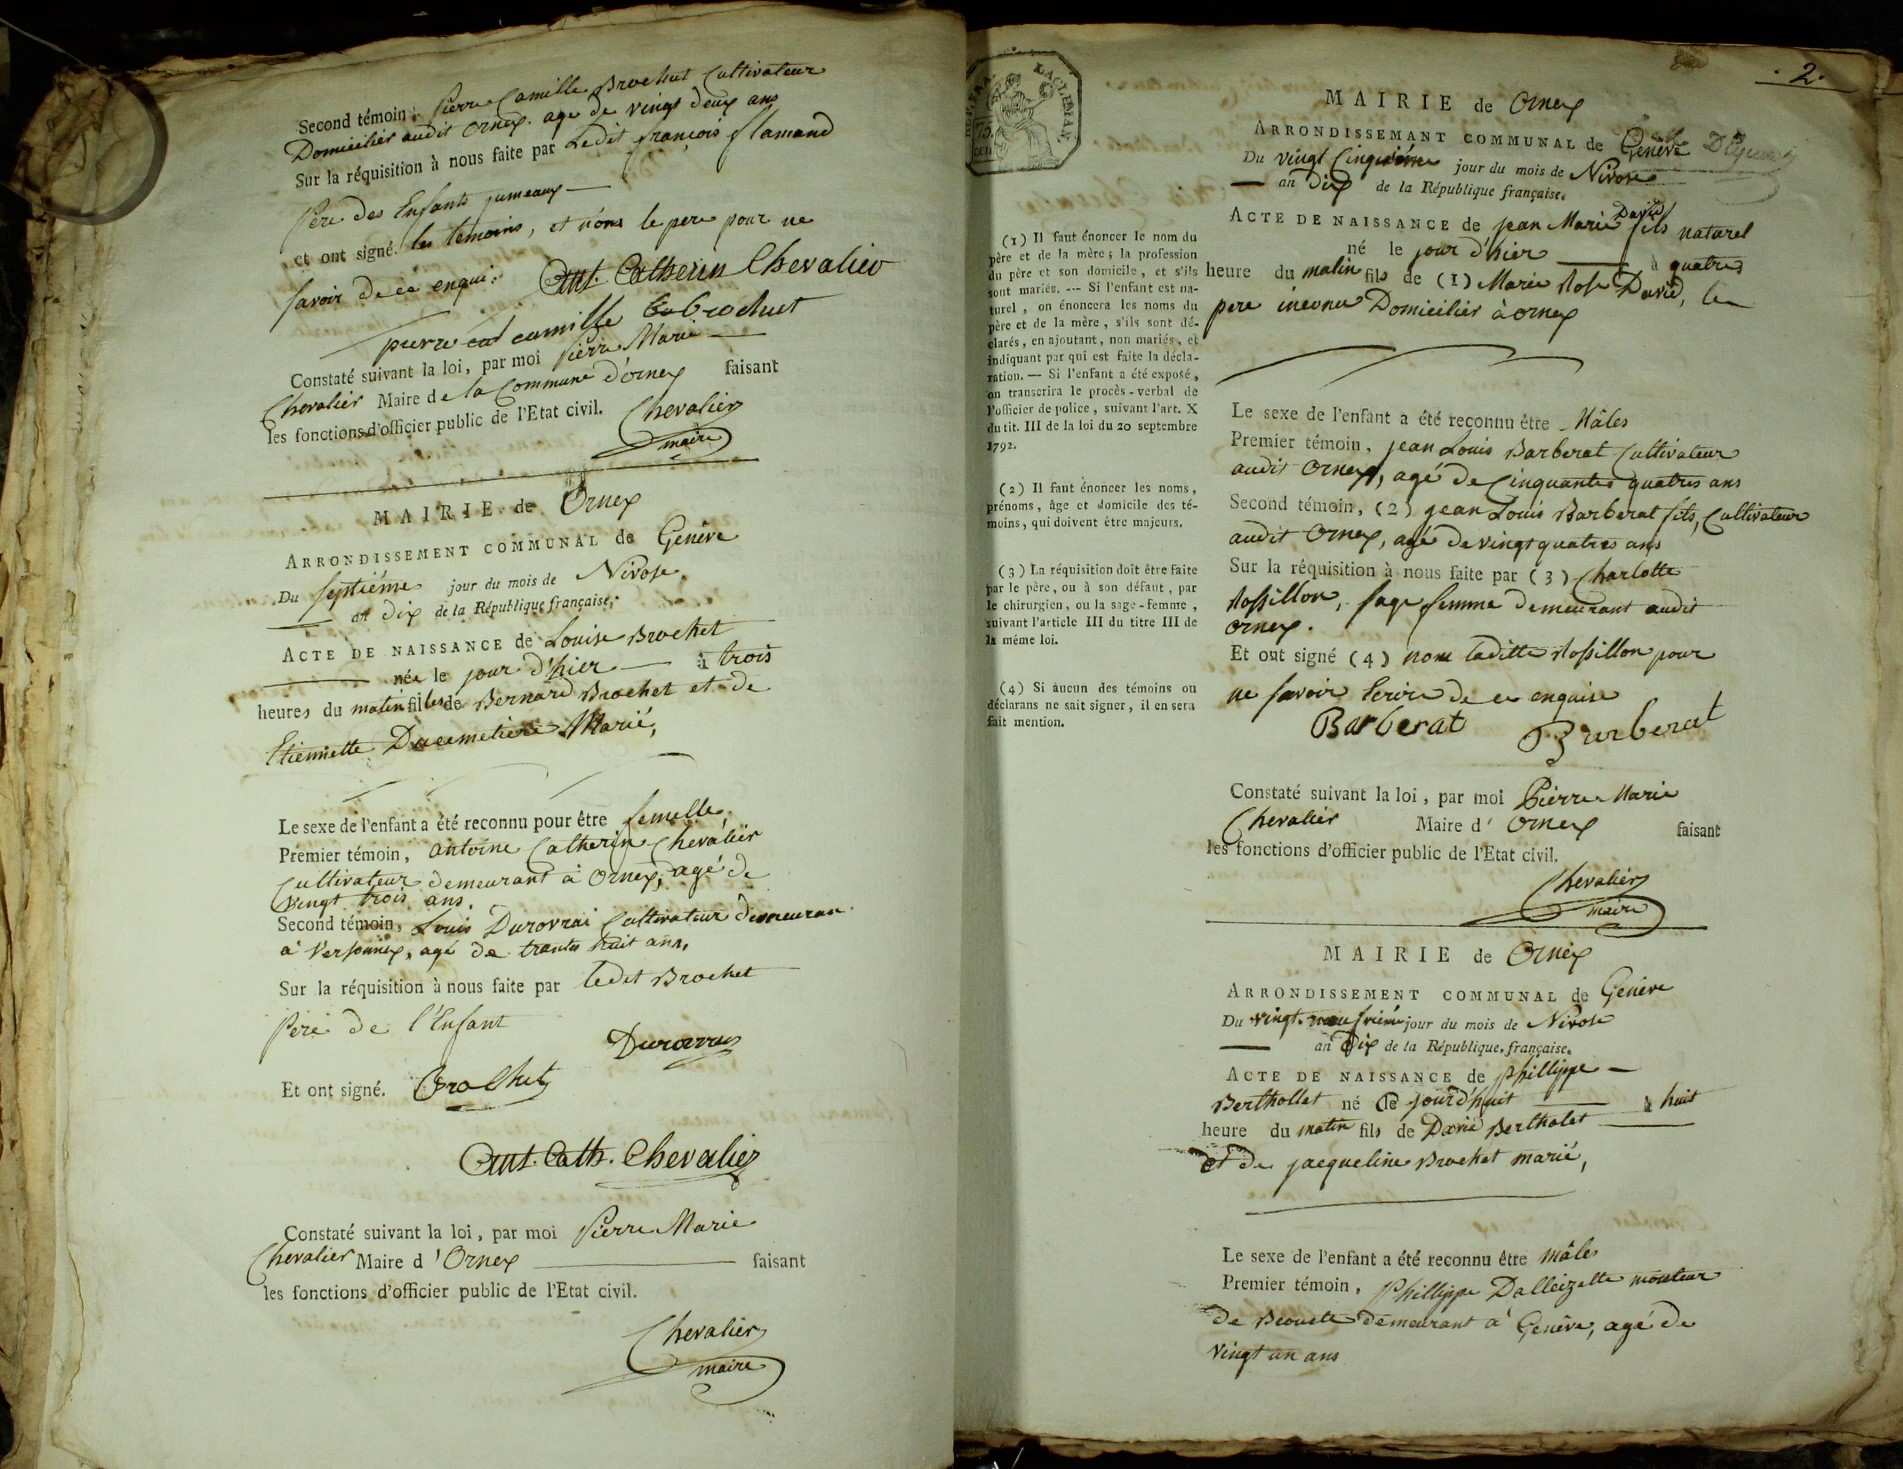 Second témoin, Pierre Camille Brochut Cultivateur
Domicilier audit Ornex. age de vingt deux ans
Sur la réquisition à nous faite par Ledit françois flamand
Père des Enfants jumeaux
et ont signé. les temoins, et nóns le pere pour ne
savoir de ce enqui.
Ant. Catherin Chevalier
pierre camille Brochut
Constaté suivant la loi, par moi Pierre Marie
Chevalier Maire de la Commune d'ornex faisant
les fonctions d'officier public de l'Etat civil.
Chevalier
maire
MAIRIE de Ornex
ARRONDISSEMENT COMMUNAL de Genève
Du septiéme jour du mois de Nivose
an dix de la République française.
ACTE DE NAISSANCE de Louise Brochet
née le jour d'hier à trois
heures du matin filles de Bernard Brochet et de
Etiennette Ducimetiere Marié,
Le sexe de l'enfant a été reconnu pour être femelle,
Premier témoin, antoine Catherin Chevalier
Cultivateur demeurant à Ornex, agé de
Vingt trois ans.
Second témoin, Louis Durovrai Cultivateur demeuran
à Versonnex, agé de trante huit ans,
Sur la réquisition à nous faite par ledit Brochet
Père de l'Enfant
Durovray
Et ont signé. Brochet
Ant. Cath. Chevalier
Constaté suivant la loi, par moi Pierre Marie
Chevalier Maire d'Ornex faisant
les fonctions d'officier public de l'Etat civil.
Chevalier
maire
2.
MAIRIE de Ornex
ARRONDISSEMANT COMMUNAL de Genève
Du vingt Cinquiéme jour du mois de Nivose
an dix de la République française.
ACTE DE NAISSANCE de jean Marie David fils naturel
né le jour d'hier à quatre
heure du matin fils de (1) Marie Rose David, le
pere inconnu Domicilier à ornex
(1) Il faut énoncer le nom du
père et de la mère; la profession
du père et son domicile, et s'ils
sont mariés. --- Si l'enfant est na-
turel, on énoncera les noms du
père et de la mère, s'ils sont dé-
clarés, en ajoutant, non mariés, et
indiquant par qui est faite la décla-
ration. — Si l'enfant a été exposé,
on transcrira le procès-verbal de
l'officier de police, suivant l'art. X
du tit. III de la loi du 20 septembre
1792.
(2) Il faut énoncer les noms,
prénoms, âge et domicile des té-
moins, qui doivent être majeurs.
(3) La réquisition doit être faite
par le père, ou à son défaut, par
le chirurgien, ou la sage-femme,
suivant l'article III du titre III de
la même loi.
(4) Si aucun des témoins ou
déclarans ne sait signer, il en sera
fait mention.
Le sexe de l'enfant a été reconnu être Mâles
Premier témoin, jean Louis Barberat Cultivateur
audit Ornex, agé de Cinquante quatres ans
Second témoin, (2) jean Louis Barberat fils, Cultivateur
audit Ornex, agé de vingt quatres ans
Sur la réquisition à nous faite par (3) Charlotte
Rossillon, sage femme demeurant audit
ornex.
Et ont signé (4) non laditte Rossillon pour
ne savoir Ecrire de ce enquise
Barberat Barberat
Constaté suivant la loi, par moi Pierre Marie
Chevalier Maire d'Ornex faisant
les fonctions d'officier public de l'Etat civil.
Chevalier
maire
MAIRIE de Ornex
ARRONDISSEMENT COMMUNAL de Genève
Du vingt-neufviém jour du mois de Nivose
an Dix de la République française.
ACTE DE NAISSANCE de Phillippe
Berthollet né le jourd'huit à huit
heure du matin fils de David Bertholet
et de jacqueline Brochet marié,
Le sexe de l'enfant a été reconnu être mâles
Premier témoin, Phillippe Dalleizette monteur
de Beouete demeurant à Genève, agé de
Vingt un ans